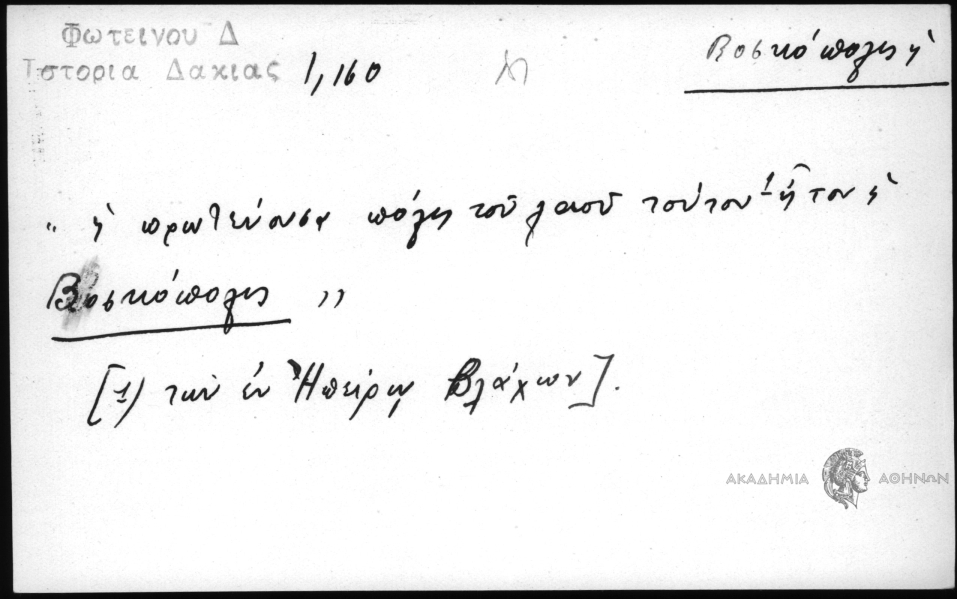 Φωτεινου Δ
Ιστορια Δακιας 1,160
Βοσκόπολις ἡ
“ ἡ πρωτεύουσα πόλις τοῦ λαοῦ τούτου 1 ἦτον ἡ
Βοσκόπολις ”
[1) τῶν ἐν Ἠπείρῳ Βλάχων].
ΑΚΑΔΗΜΙΑ ΑΘΗΝΩΝ